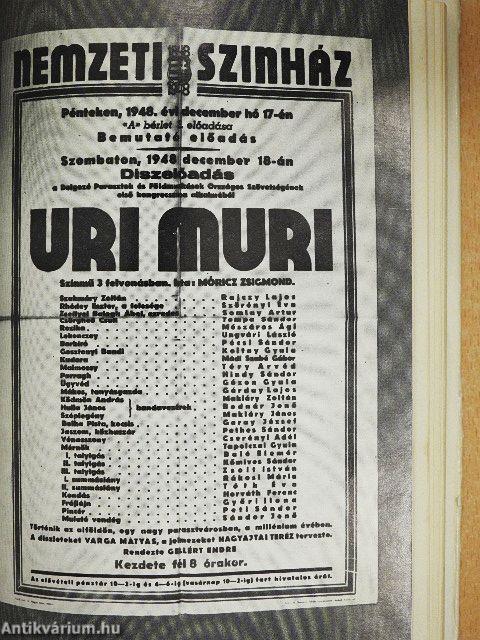 NEMZETI SZINHÁZ
Pénteken, 1948. évi december hó 17-én
«A» bérlet előadása
Bemutató előadás
Szombaton, 1948 december 18-án
Díszelőadás
a Dolgozó Parasztok és Földmunkások Országos Szövetségének
első kongresszusa alkalmából
URI MURI
Szinmű 3 felvonásban. Irta: MÓRICZ ZSIGMOND.
Szakmáry Zoltán Rajczy Lajos
Rhédey Eszter, a felesége Szörényi Éva
Zsellyei Balogh Ábel, ezredes Somlay Artur
Csörgheő Csuli Tompa Sándor
Rozika Mészáros Ági
Lekenczey Ungvári László
Borbíró Pécsi Sándor
Gosztonyi Bandi Koltay Gyula
Kádora Mádi Szabó Gábor
Malmossy Téry Árvéd
Parragh Hindy Sándor
Ügyvéd Gózon Gyula
Mákos, tanyásgazda Gárday Lajos
Ködmön András Makláry Zoltán
Hulla János bandavezérek Bodnár Jenő
Széplegény Makláry János
Balha Pista, kocsis Garay József
Juszom, közhuszár Pethes Sándor
Vénasszony Cserényi Adél
Mérnök Tapolczai Gyula
I. talyigás Baló Elemér
II. talyigás Kömives Sándor
III. talyigás Zsolt István
I. summáslány Rákosi Mária
II. summáslány Tóth Éva
Kondás Horváth Ferenc
Frájlájn Győri Ilona
Pincér Peti Sándor
Mulató vendég Sándor Jenő
Történik az alföldön, egy nagy parasztvárosban, a millénium évében.
A díszleteket VARGA MÁTYÁS, a jelmezeket NAGYAJTAI TERÉZ tervezte.
Rendezte GELLÉRT ENDRE
Kezdete fél 8 órakor.
Az elővételi pénztár 10—2-ig és 4—6-ig (vasárnap 10—2-ig) tart hivatalos órát.
Antikvárium.hu